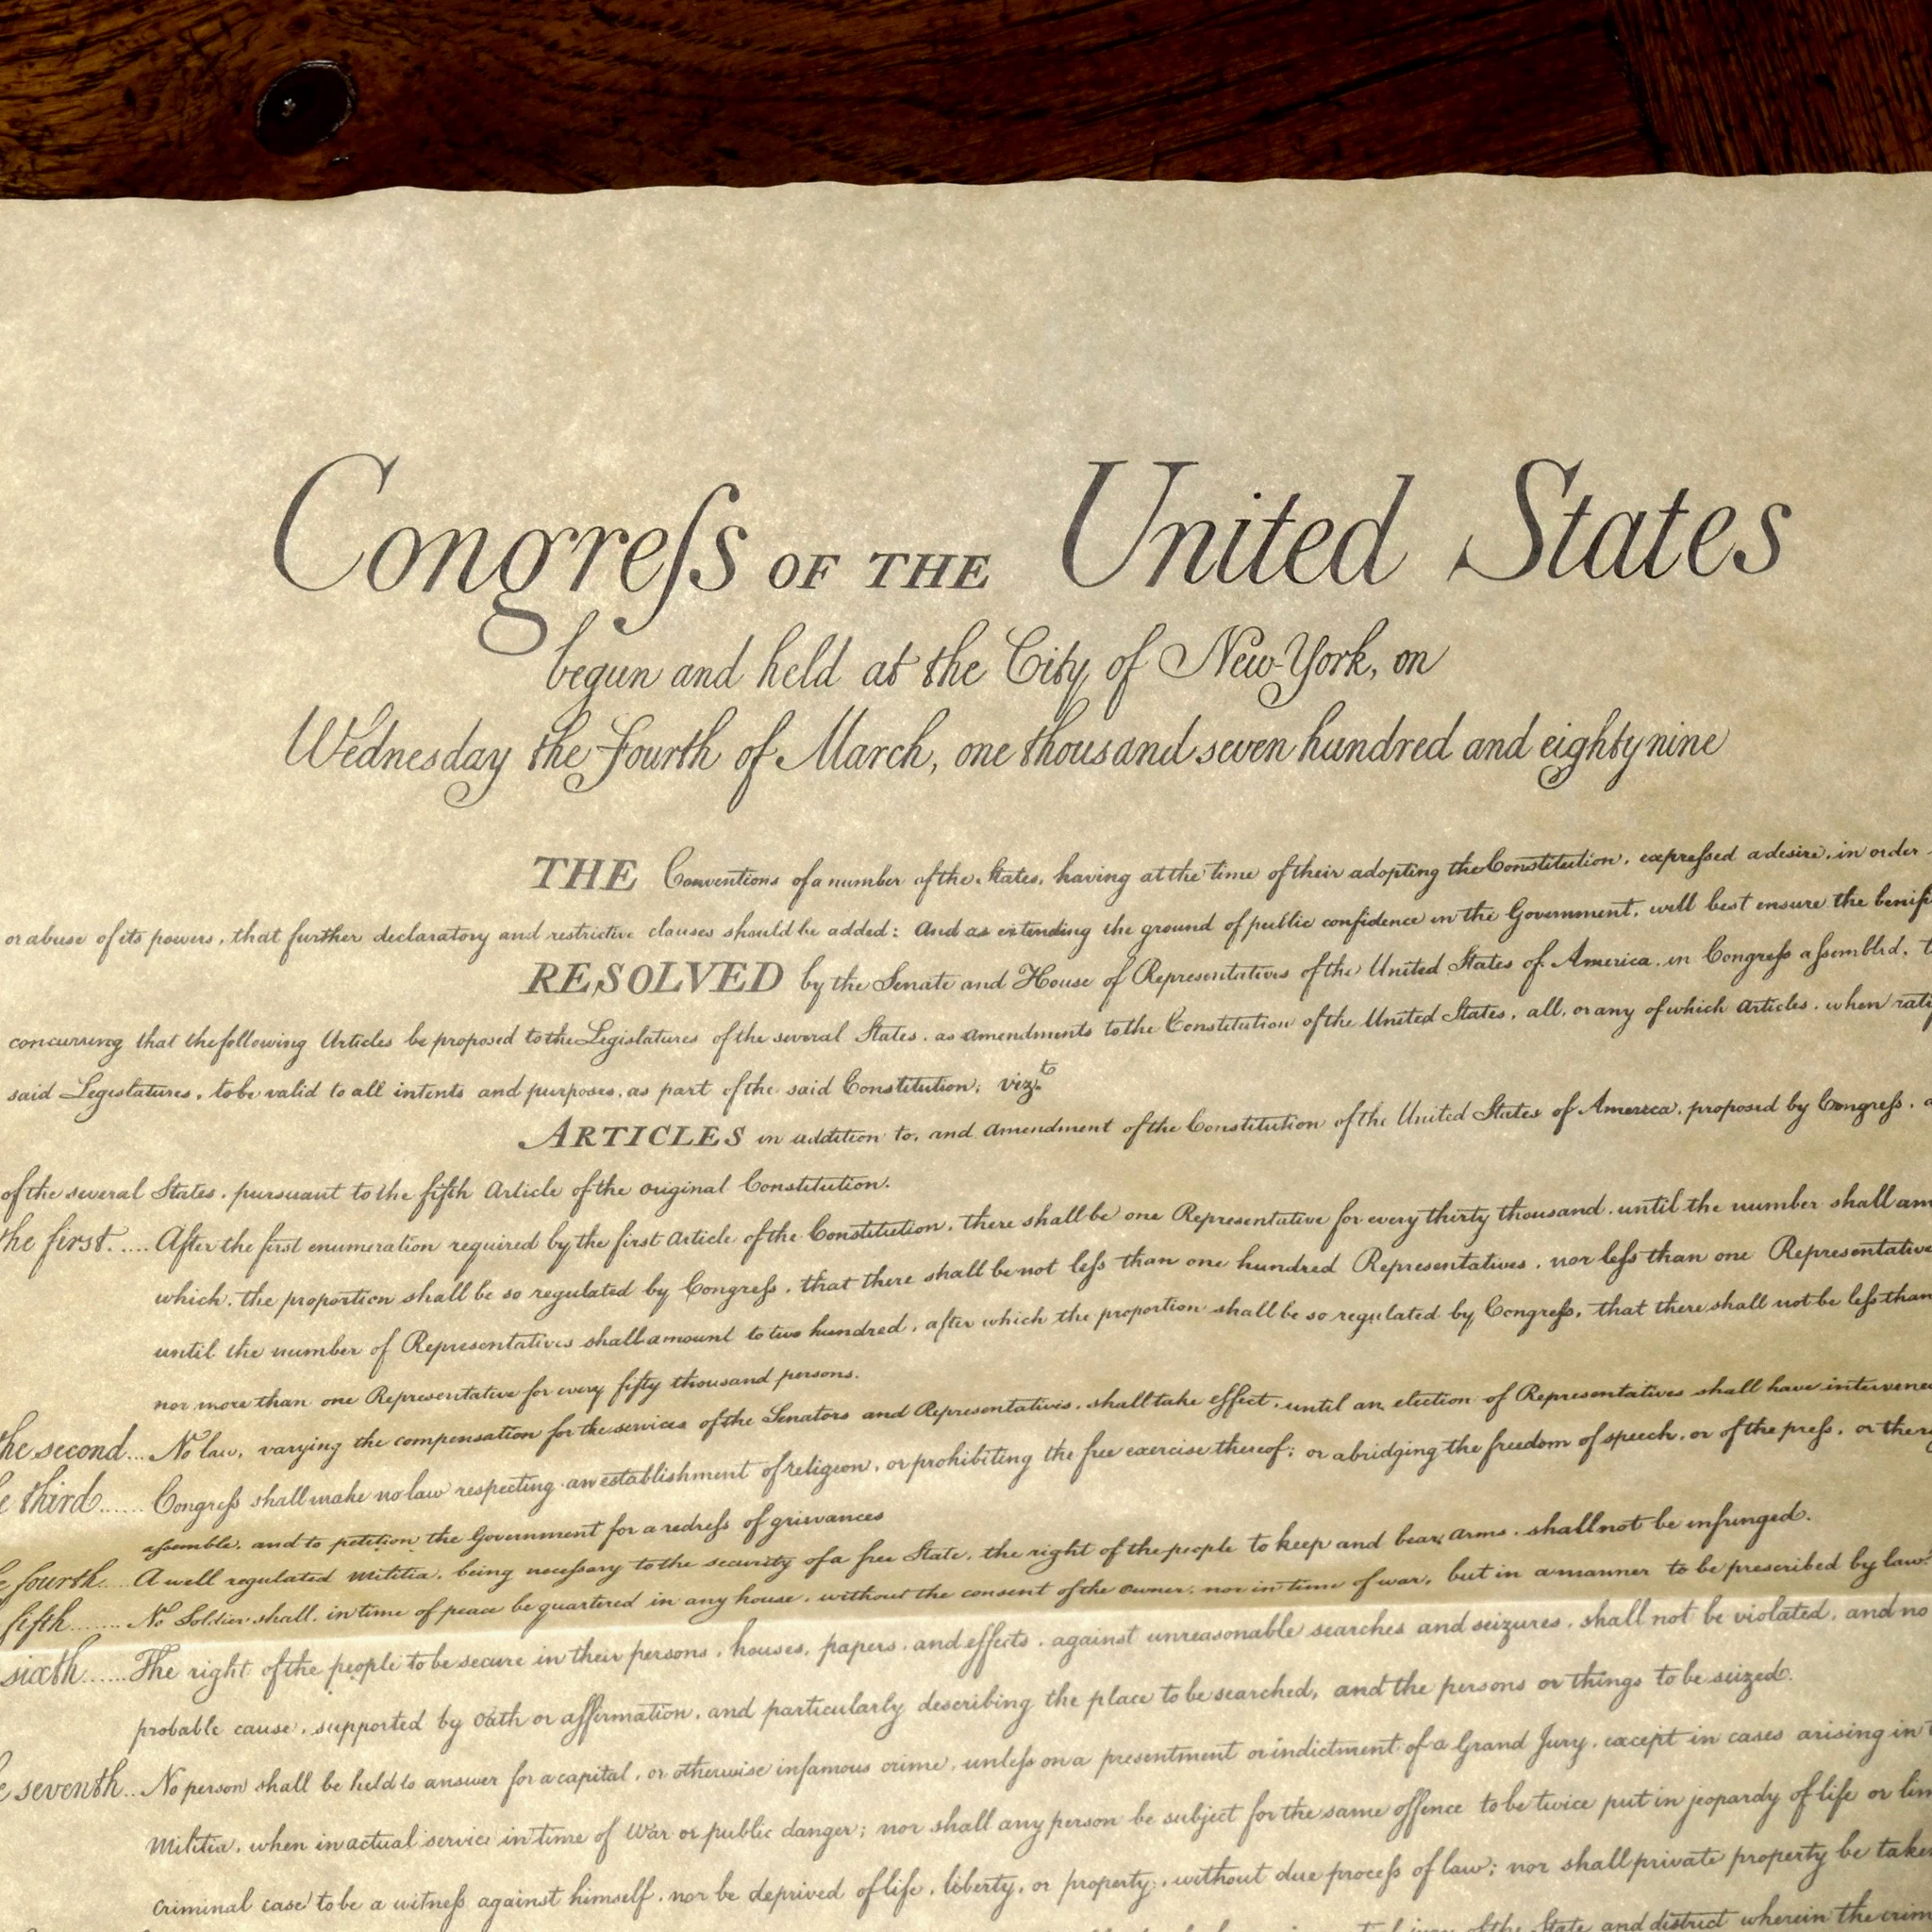 Congreſs OF THE United States
begun and held at the City of New-York, on
Wednesday the Fourth of March, one thousand seven hundred and eighty nine
THE Conventions of a number of the States, having at the time of their adopting the Constitution, expreſsed a desire, in order
or abuse of its powers, that further declaratory and restrictive clauses should be added: And as extending the ground of public confidence in the Government, will best ensure the benif
RESOLVED by the Senate and House of Representatives of the United States of America, in Congreſs aſsembled, t
concurring that the following Articles be proposed to the Legislatures of the several States, as Amendments to the Constitution of the United States, all, or any of which Articles, when rati
said Legislatures, to be valid to all intents and purposes, as part of the said Constitution; vizt
ARTICLES in addition to, and Amendment of the Constitution of the United States of America, proposed by Congreſs, a
of the several States, pursuant to the fifth Article of the original Constitution.
the first..... After the first enumeration required by the first Article of the Constitution, there shall be one Representative for every thirty thousand, until the number shall am
which, the proportion shall be so regulated by Congreſs, that there shall be not leſs than one hundred Representatives, nor leſs than one Representative
until the number of Representatives shall amount to two hundred, after which the proportion shall be so regulated by Congreſs, that there shall not be leſs than
nor more than one Representative for every fifty thousand persons.
the second... No law, varying the compensation for the services of the Senators and Representatives, shall take effect, until an election of Representatives shall have intervened
e third...... Congreſs shall make no law respecting an establishment of religion, or prohibiting the free exercise thereof; or abridging the freedom of speech, or of the preſs, or the
aſsemble, and to petition the Government for a redreſs of grievances
e fourth.... A well regulated Militia, being neceſsary to the security of a free State, the right of the people to keep and bear Arms, shall not be infringed.
fifth........ No Soldier shall, in time of peace be quartered in any house, without the consent of the owner, nor in time of war, but in a manner to be prescribed by law.
sixth...... The right of the people to be secure in their persons, houses, papers, and effects, against unreasonable searches and seizures, shall not be violated, and no
probable cause, supported by Oath or affirmation, and particularly describing the place to be searched, and the persons or things to be seized.
e seventh... No person shall be held to answer for a capital, or otherwise infamous crime, unleſs on a presentment or indictment of a Grand Jury, except in cases arising in t
Militia, when in actual service in time of War or public danger; nor shall any person be subject for the same offence to be twice put in jeopardy of life or lim
criminal case to be a witneſs against himself, nor be deprived of life, liberty, or property, without due proceſs of law; nor shall private property be take
jury of the State and district wherein the crim